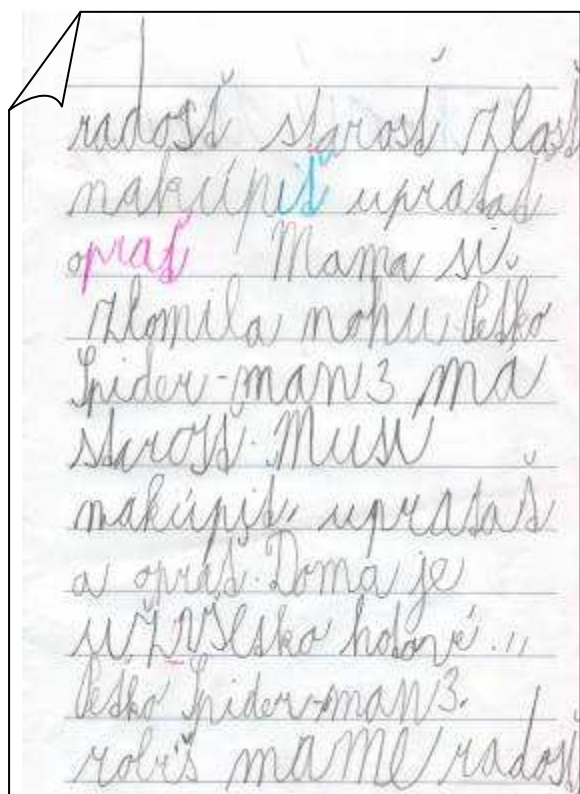 radosť starosť zlosť
nakúpiť upratať
oprať Mama si.
zlomila nohu Peťko
Spider-man 3 má
starosť. Musí
nakúpiť, upratať
a oprať. Doma je
už všetko hotové.
Peťko Spider-man 3.
robíš mame radosť